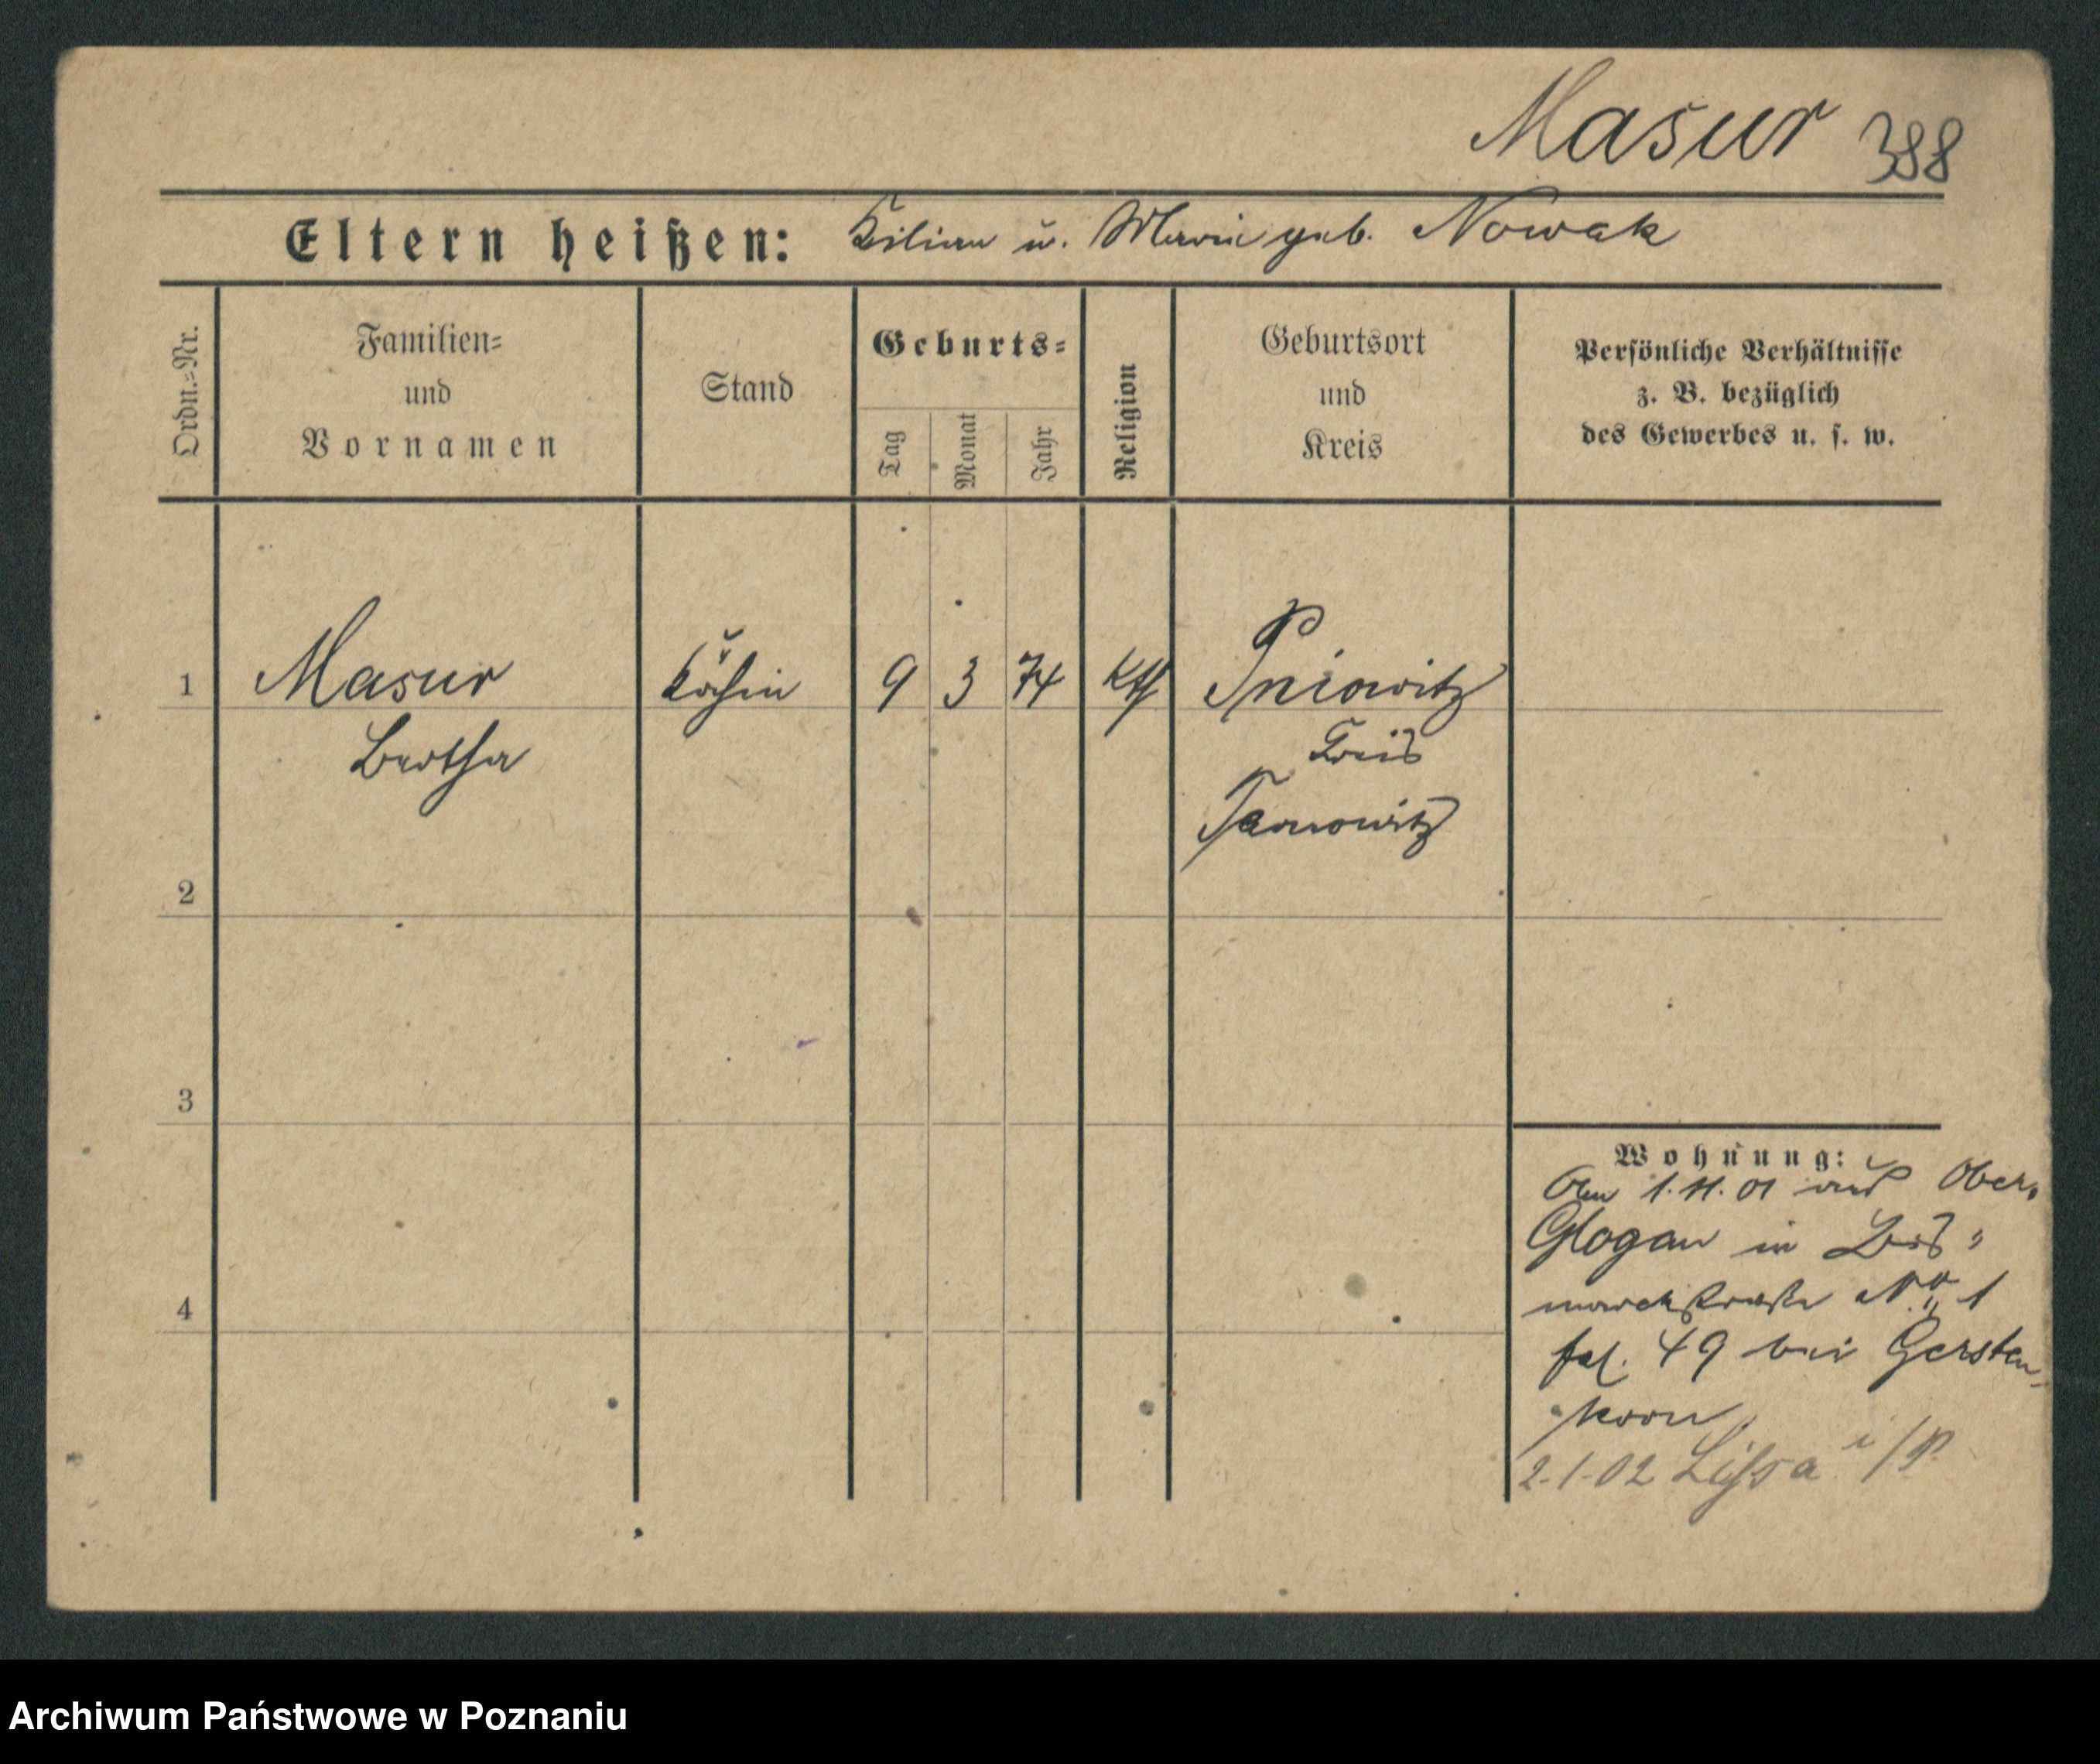 Masur 388
Eltern heißen: Kilian u. Marie geb. Nowak
Ordn.-Nr.
Familien-
und
Vornamen
Stand
Geburts-
Tag
Monat
Jahr
Religion
Geburtsort
und
Kreis
Persönliche Verhältnisse
z. B. bezüglich
des Gewerbes u. s. w.
1 Masur Köchin 9 3 74 kth Pniowitz
Bertha Kreis
Tarnowitz
2
3
4
Wohnung:
Am 1.11.01 aus Ober-
Glogau in Bis-
marckstraße No 1
fol. 49 bei Gersten-
korn
2.1.02 Lissa i/P.
Archiwum Państwowe w Poznaniu